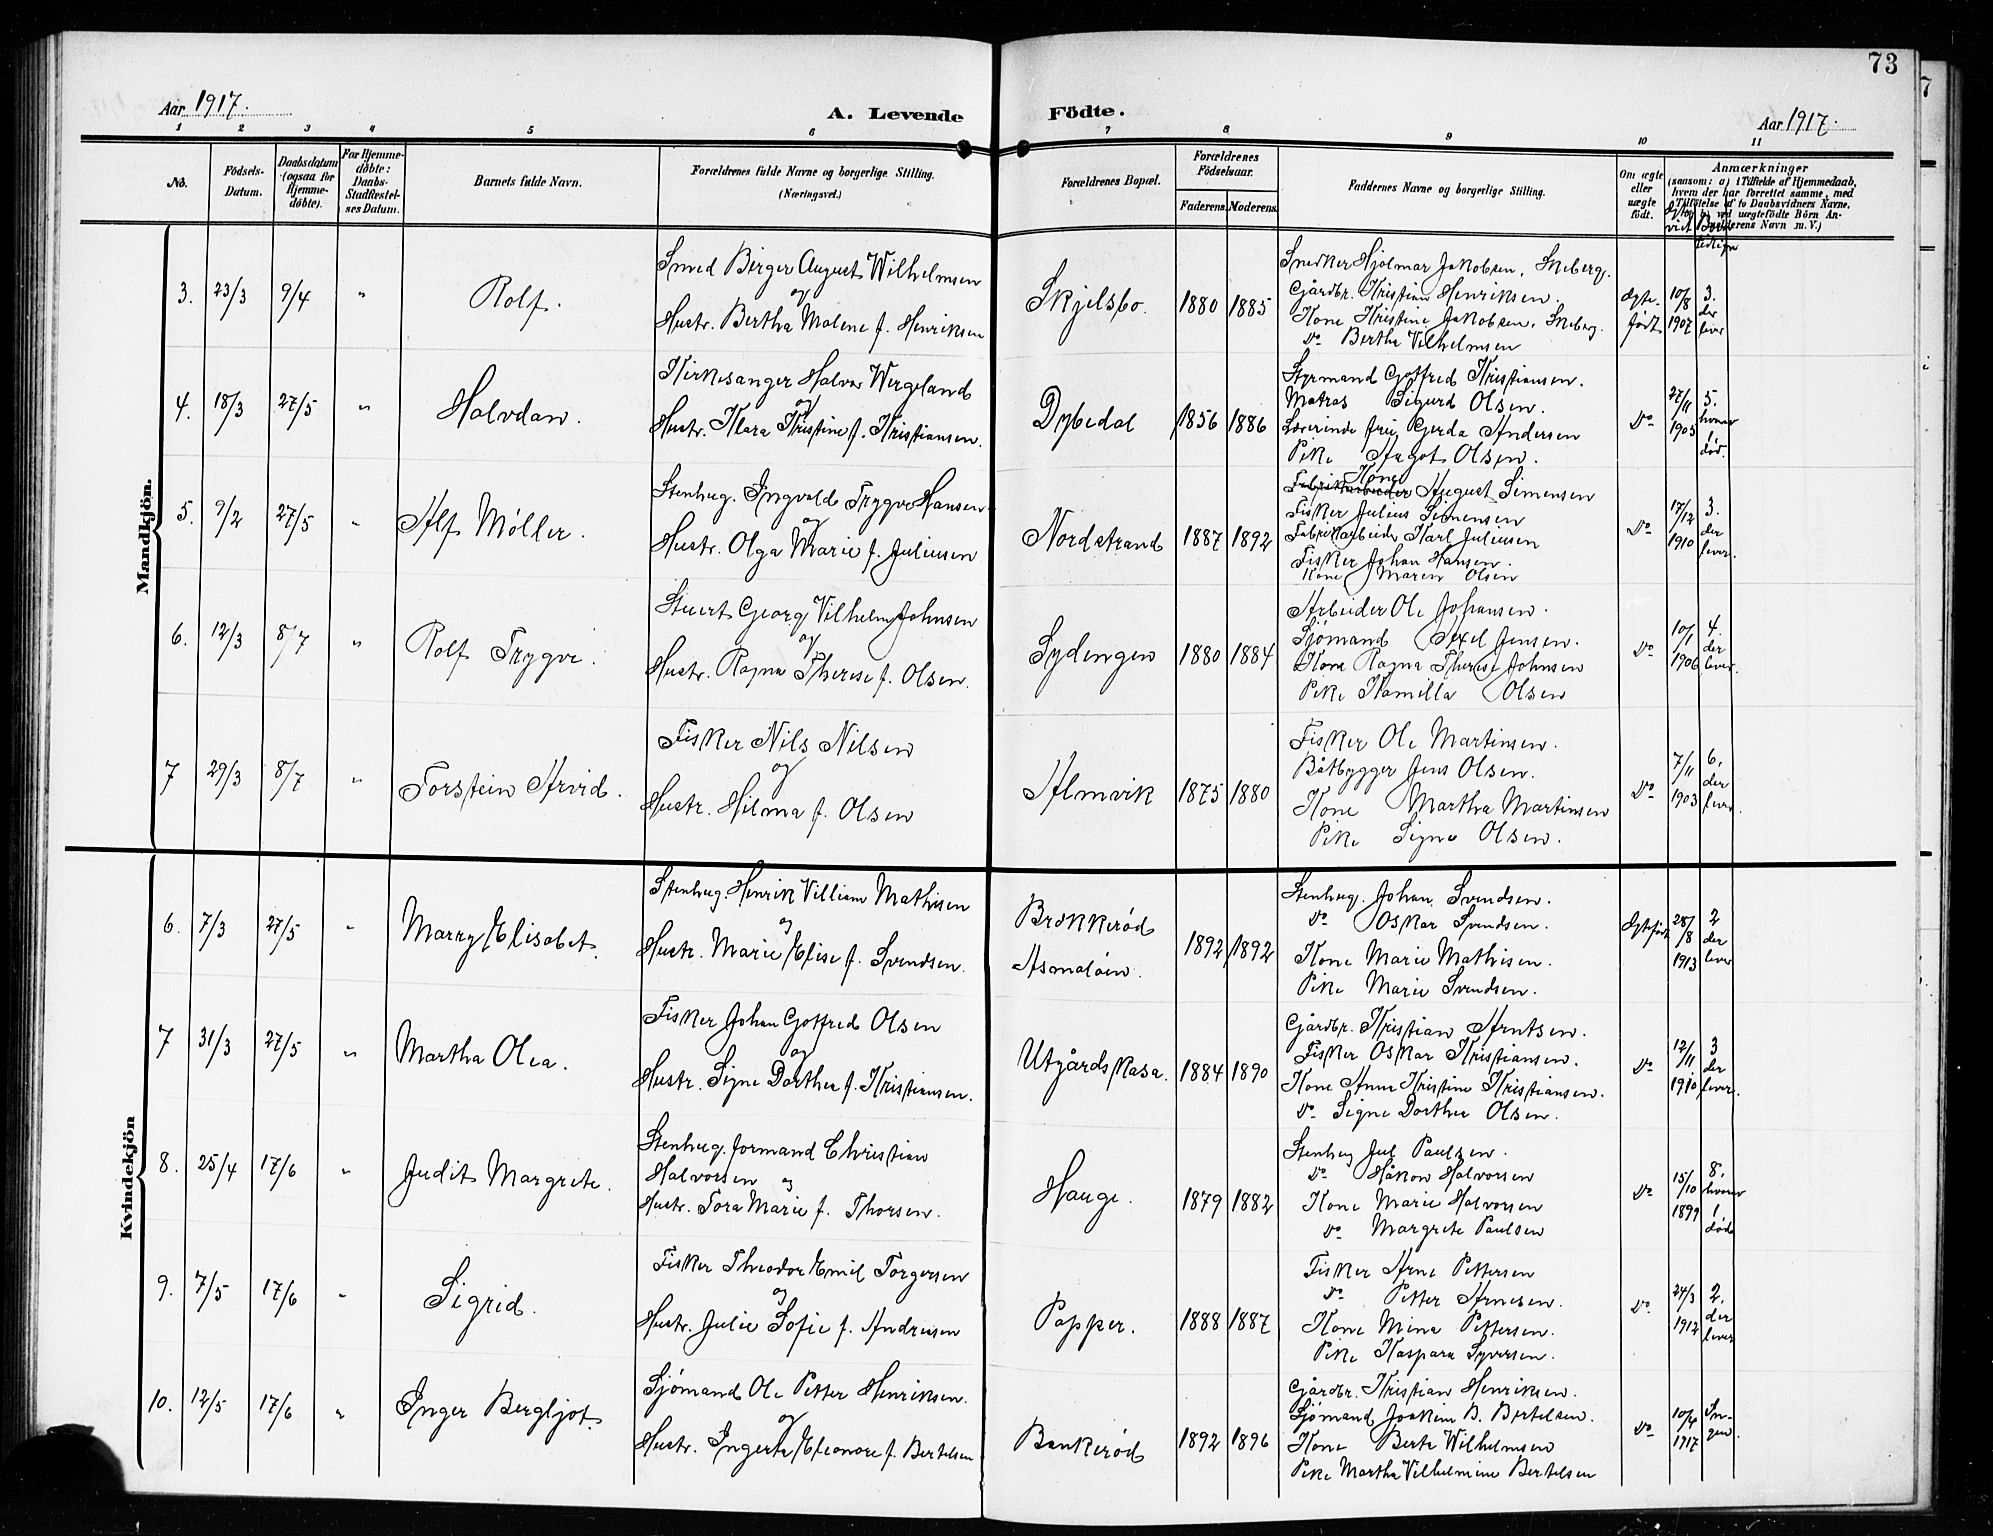 73
Aar 1917.
A. Levende Födte.
Aar 1917.
1 2 3 4 5 6 7 8 9 10 11
No.
Födsels-Datum.
Daabsdatum (ogsaa for Hjemme-döbte).
For Hjemme-döbte: Daabs-Stadfæstel-ses Datum.
Barnets fulde Navn.
Forældrenes fulde Navne og borgerlige Stilling. (Næringsvei.)
Forældrenes Bopæl.
Forældrenes Födselsaar.
Faderens. Moderens.
Faddernes Navne og borgerlige Stilling.
Om ægte eller uægte födt.
Anmærkninger
(saasom: a) i Tilfælde af Hjemmedaab,
hvem der har forrettet samme, med
Tilföielse af to Daabsvidners Navne,
b) ved uægtefödte Börn An-
Fædderens Navn m. V.)
Mandkjön.
3. 23/3 9/4 " Rolf.
Smed Birger August Wilhelmsen
og
Hustr. Bertha Malene f. Henriksen
Skjelsbo. 1880 1885
Snedker Hjalmar Jakobsen, Skeberg.
Gårdbr. Kristian Henriksen.
Kone Kristine Jakobsen, Skeberg.
Do Bertha Vilhelmsen
Ægte-født 10/8 1907 3. der lever
4. 18/3 27/5 " Halvdan.
Kirkesanger Halvor Wergeland
og
Hustr. Klara Kristine f. Kristiansen.
Dybedal 1856 1886
Styrmand Gotfred Kristiansen.
Matros Sigurd Olsen.
Lærerinde frø. Gerda Andersen
Pike Aagot Olsen.
Do 27/11 1905 5. hvorav 1 død.
5. 9/2 27/5 " Alf Møller.
Stenhug. Ingvald Trygve Hansen
og
Hustr. Olga Marie f. Juliusen
Nordstrand 1887 1892
Kone
Fabrikarbeider August Simensen
Fisker Julius Simensen
Fabrikarbeider Karl Juliusen
Fisker Johan Hansen.
Kone Maren Olsen
Do 17/12 1910 3. der lever.
6. 12/3 8/7 " Rolf Trygve.
Stuert Georg Vilhelm Johnsen
og
Hustr. Ragna Therese f. Olsen.
Sydengen 1880 1884
Arbeider Ole Johansen.
Sjømand Axel Jensen.
Kone Ragna Therese Johnsen
Pike Kamilla Olsen
Do 10/1 1906 4. der lever.
7 29/3 8/7 " Torstein Arvid.
Fisker Nils Nilsen
og
Hustr. Hilma f. Olsen
Almvik 1875 1880
Fisker Ole Martinsen.
Båtbygger Jens Olsen.
Kone Martha Martinsen
Pike Signe Olsen.
Do 7/11 1903 6, der lever.
Kvindekjön
6. 7/3 27/5 " Marry Elisabet.
Stenhug. Henrik Villiam Mathisen
og
Hustr. Marie Elise f. Svendsen.
Brekkerød Asmaløen. 1892 1892
Stenhug. Johan Svendsen.
Do Oskar Svendsen.
Kone Marie Mathisen.
Pike Marie Svendsen.
Ægtefødt 28/8 1913 2 der lever
7 31/3 27/5 " Martha Olea.
Fisker Johan Gotfred Olsen
og
Hustr. Signe Dorthea f. Kristiansen.
Utgårdskasa. 1884 1890
Gårdbr. Kristian Arntsen.
Fisker Oskar Kristiansen.
Kone Anne Kristine Kristiansen.
Do Signe Dorthea Olsen.
Do 12/11 1910 3 der lever.
8. 25/4 17/6 " Judit Margrete.
Stenhug. formand Christian
Halvorsen og
Hustr. Tora Marie f. Thorsen.
Hauge. 1879 1882
Stenhug Jul Paulsen.
Do Håkon Halvorsen
Kone Marie Halvorsen
Do Margrete Paulsen
Do 15/10 1899 8, hvorav 1 døde
9. 7/5 17/6 " Sigrid.
Fisker Theodor Emil Torgersen
og
Hustr. Julie Sofie f. Andresen
Papper. 1888 1887
Fisker Arne Pettersen
Do Petter Arnesen.
Kone Mina Pettersen.
Pike Kaspara Syversen.
Do. 24/3 1912 2. der lever
10. 12/5 17/6 " Inger Bergljot.
Sjømand Ole Petter Henriksen.
og
Hustr. Ingerta Eleonore f. Bertelsen
Bankerød 1892 1896
Gårdbr. Kristian Henriksen.
Sjømand Joakim B. Bertelsen.
Kone Berta Wilhelmsen
Pike Martha Vilhelmine Bertelsen
Do 10/4 1917 In-gen.